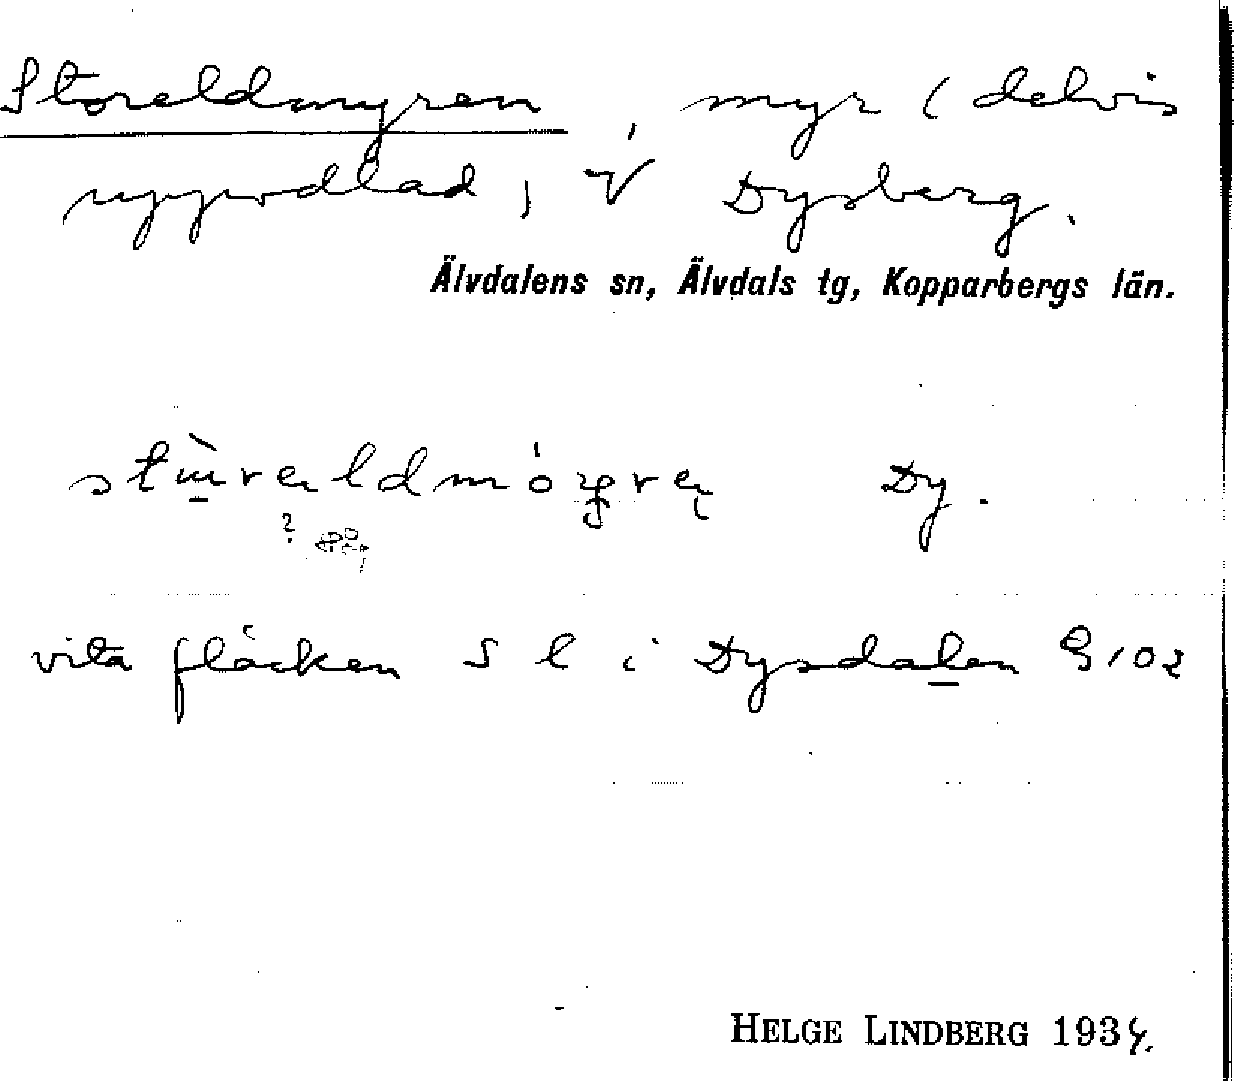 Storeldmyren, myr (delvis
uppodlad, V Dysberg.
Älvdalens sn, Älvdals tg, Kopparbergs län.
Dy.
?
vita fläcken S l i Dysdalen G 102
HELGE LINDBERG 1934.